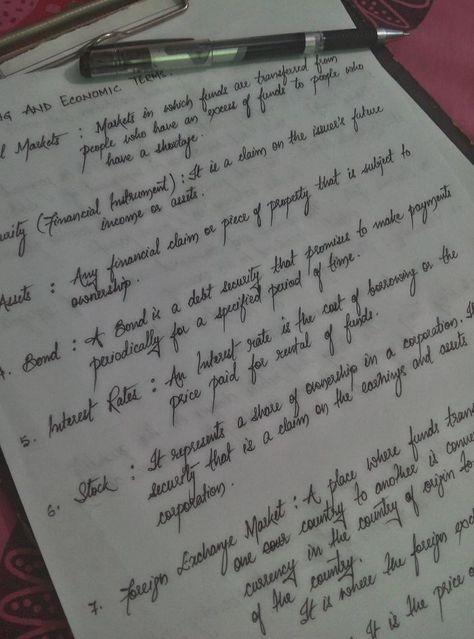 G AND ECONOMIC TERMS.
l Markets : Markets in which funds are transferred from
people who have an excess of funds to people who
have a shortage.
urity (Financial Instrument) : It is a claim on the issuer's future
income or assets.
Assets : Any financial claim or piece of property that is subject to
ownership.
4. Bond : A Bond is a debt security that promises to make payments
periodically for a specified period of time.
5. Interest Rates : An Interest rate is the cost of borrowing or the
price paid for rental of funds.
6. Stock : It represents a share of ownership in a corporation. It
security that is a claim on the earnings and assets
corporation.
7. Foreign Exchange Market : A place where funds trans
one cour country to another is conve
currency in the country of origin to
of the country.
It is where the foreign exc
It is the price o